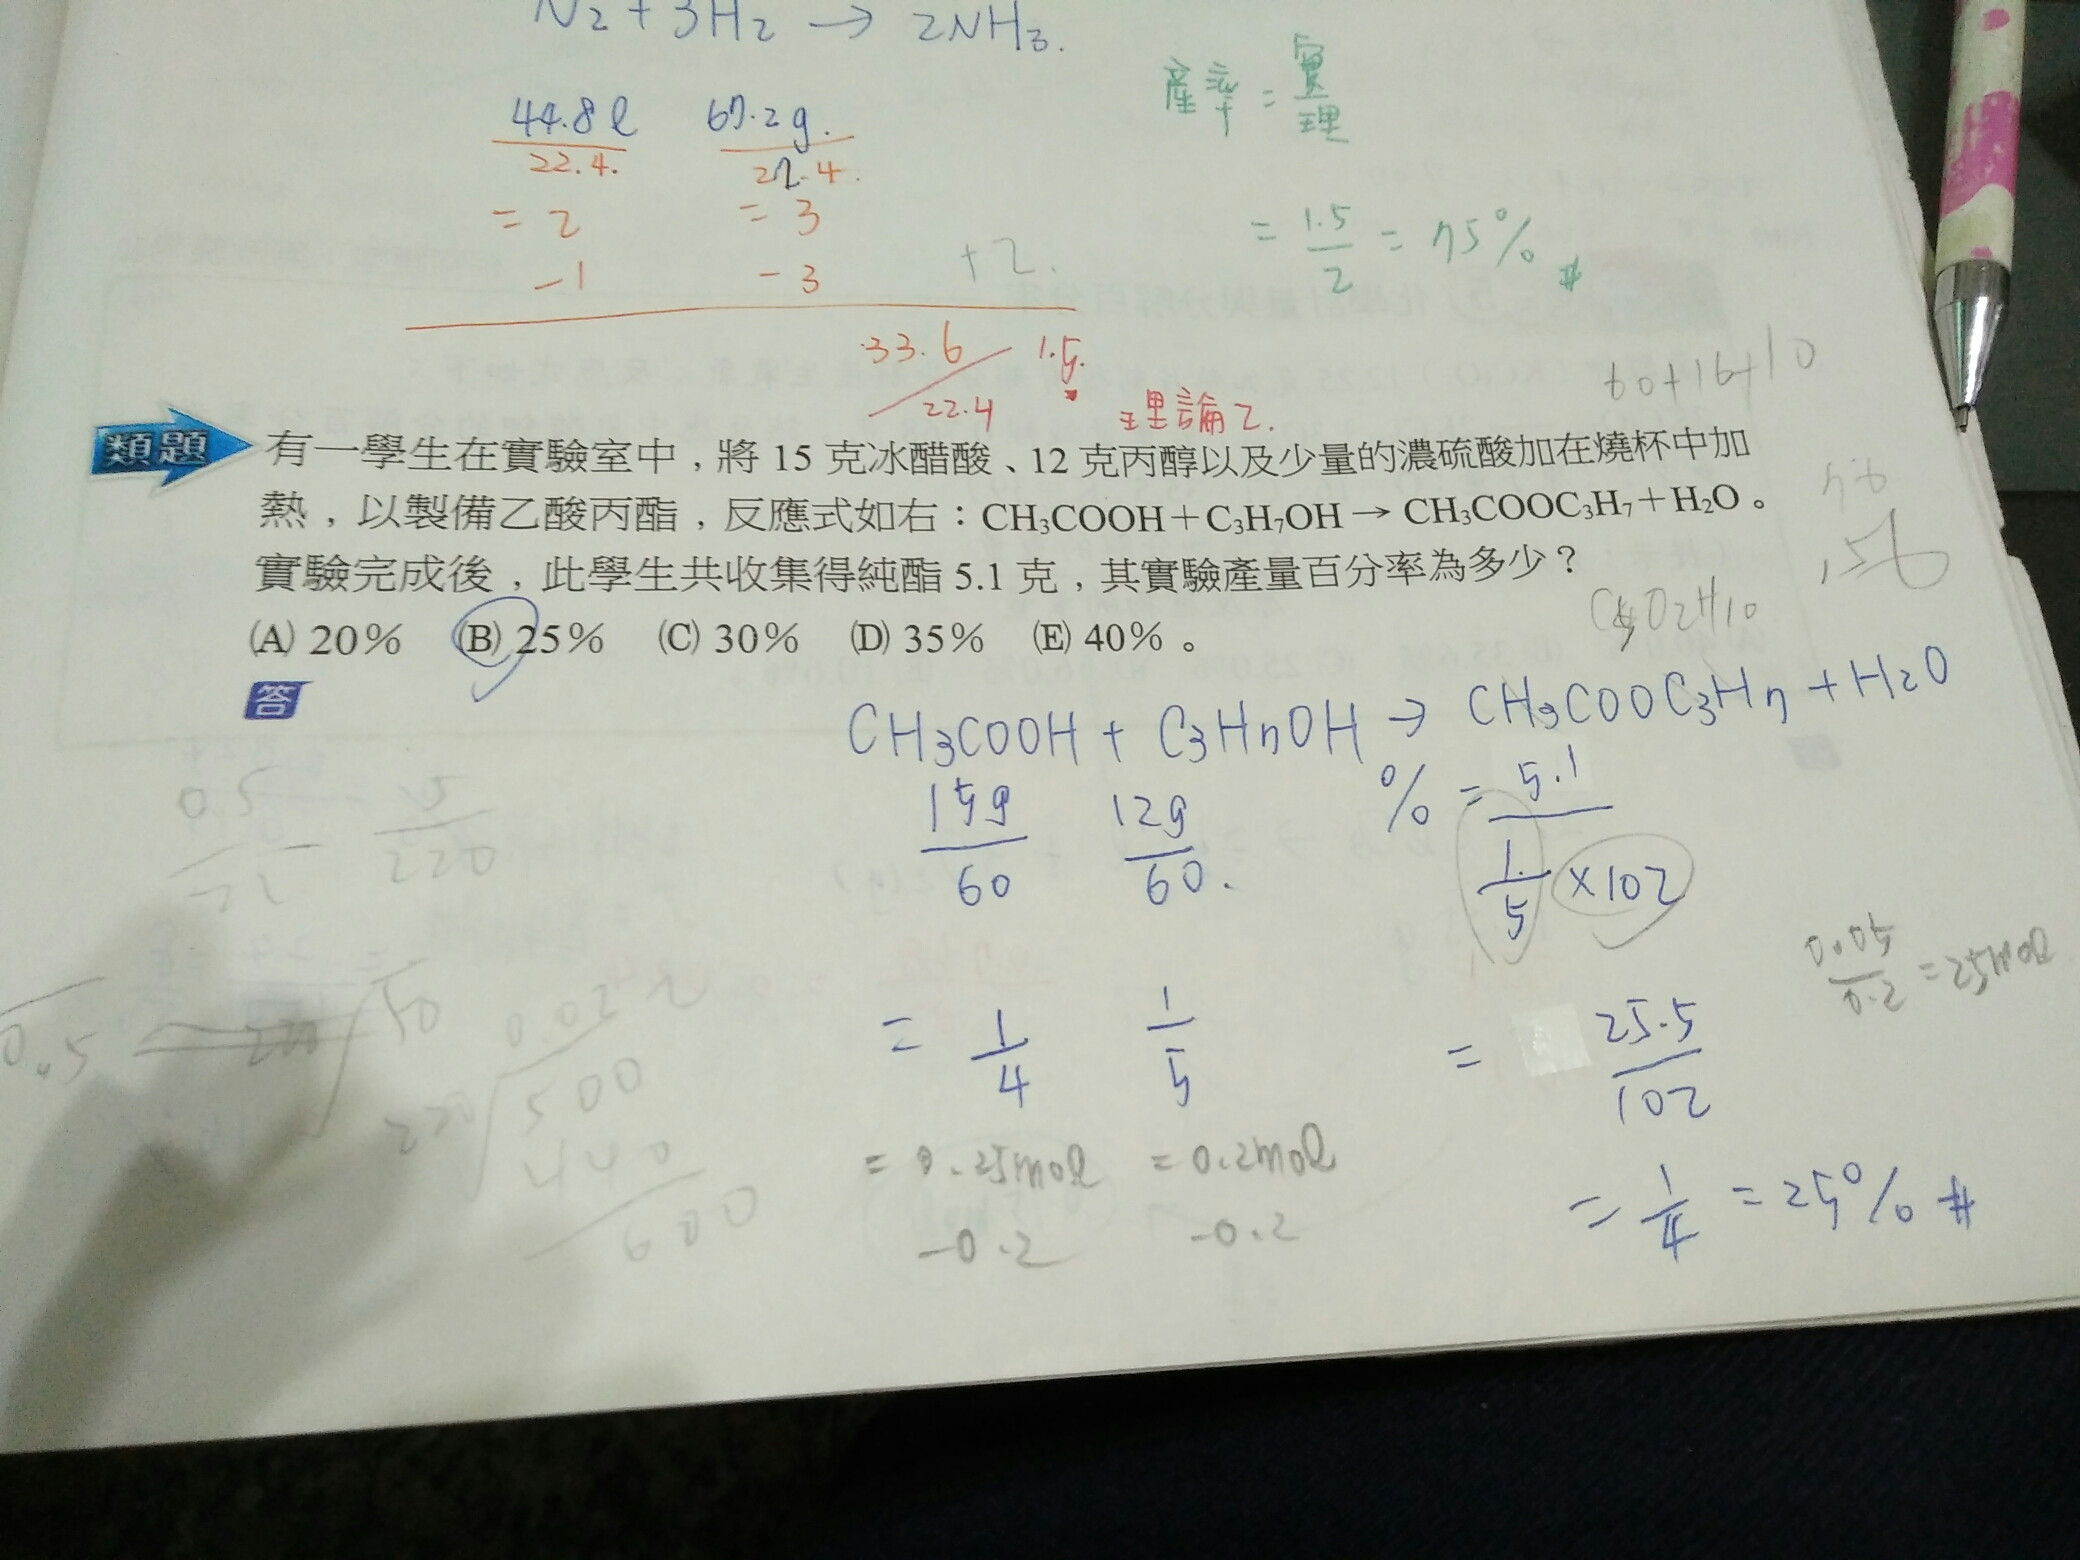 N2 + 3H2 → 2NH3.
產率 = 實/理
44.8 l 67.2 g.
22.4. 22.4.
= 2 = 3
= 1.5/2 = 75% #
-1 -3 +2.
33.6/22.4 1.5.
理論2.
60+16+10
類題 有一學生在實驗室中，將 15 克冰醋酸、12 克丙醇以及少量的濃硫酸加在燒杯中加
熱，以製備乙酸丙酯，反應式如右：CH₃COOH＋C₃H₇OH → CH₃COOC₃H₇＋H₂O。
實驗完成後，此學生共收集得純酯 5.1 克，其實驗產量百分率為多少？
(A) 20% (B) 25% (C) 30% (D) 35% (E) 40%。
答
CH3COOH + C3H7OH → CH3COOC3H7 + H2O
15g 12g % = 5.1
60 60. 1/5 ×102
= 1/4 1/5 = 25.5/102
0.05/0.2 = 25mol
= 0.25mol = 0.2mol
-0.2 -0.2
= 1/4 = 25% #
5/220
0.5
0.02
220 500
440
600